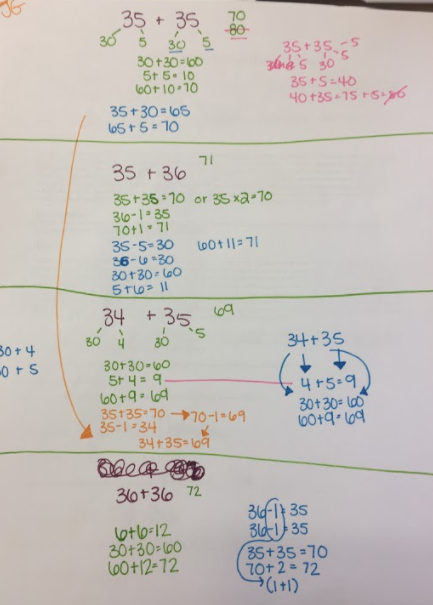 35 + 35
70
80
30 5 30 5
30+30=60
5+5=10
60+10=70
35+30=65
65+5=70
35+35
5 30 5 5
35+5=40
40+35=75+5=80
35 + 36
71
35+35=70 or 35x2=70
36-1=35
70+1=71
35-5=30
60+11=71
36-6=30
30+30=60
5+6=11
34 + 35
69
30 4 30 5
30+30=60
5+4=9
60+9=69
35+35=70 → 70-1=69
35-1=34
34+35=69
30+4
30+5
34+35
4+5=9
30+30=60
60+9=69
36+36
72
6+6=12
30+30=60
60+12=72
36-1=35
36-1=35
35+35=70
70+2=72
(1+1)